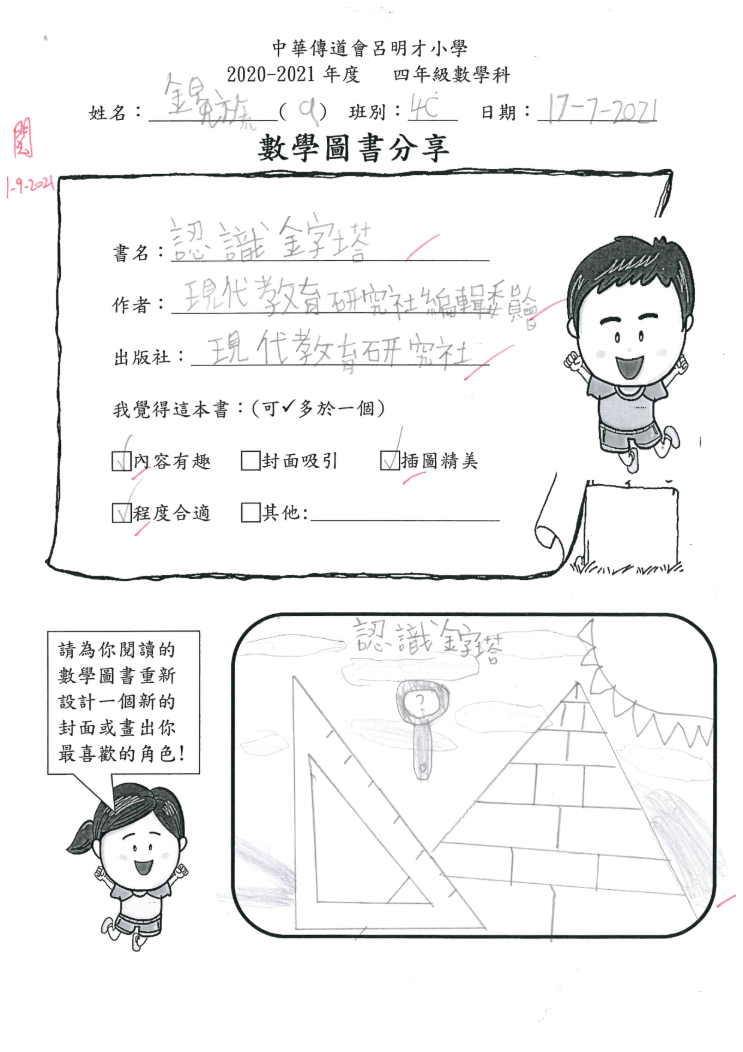 中華傳道會呂明才小學
2020-2021 年度 四年級數學科
姓名： ( 9 ) 班別：4C 日期：17-7-2021
閱
1-9-2021
數學圖書分享
書名：認識金字塔
作者：現代教育研究社編輯委員會
出版社：現代教育研究社
我覺得這本書：(可✓多於一個)
☑內容有趣 □封面吸引 ☑插圖精美
☑程度合適 □其他:
請為你閱讀的
數學圖書重新
設計一個新的
封面或畫出你
最喜歡的角色!
認識金字塔
?